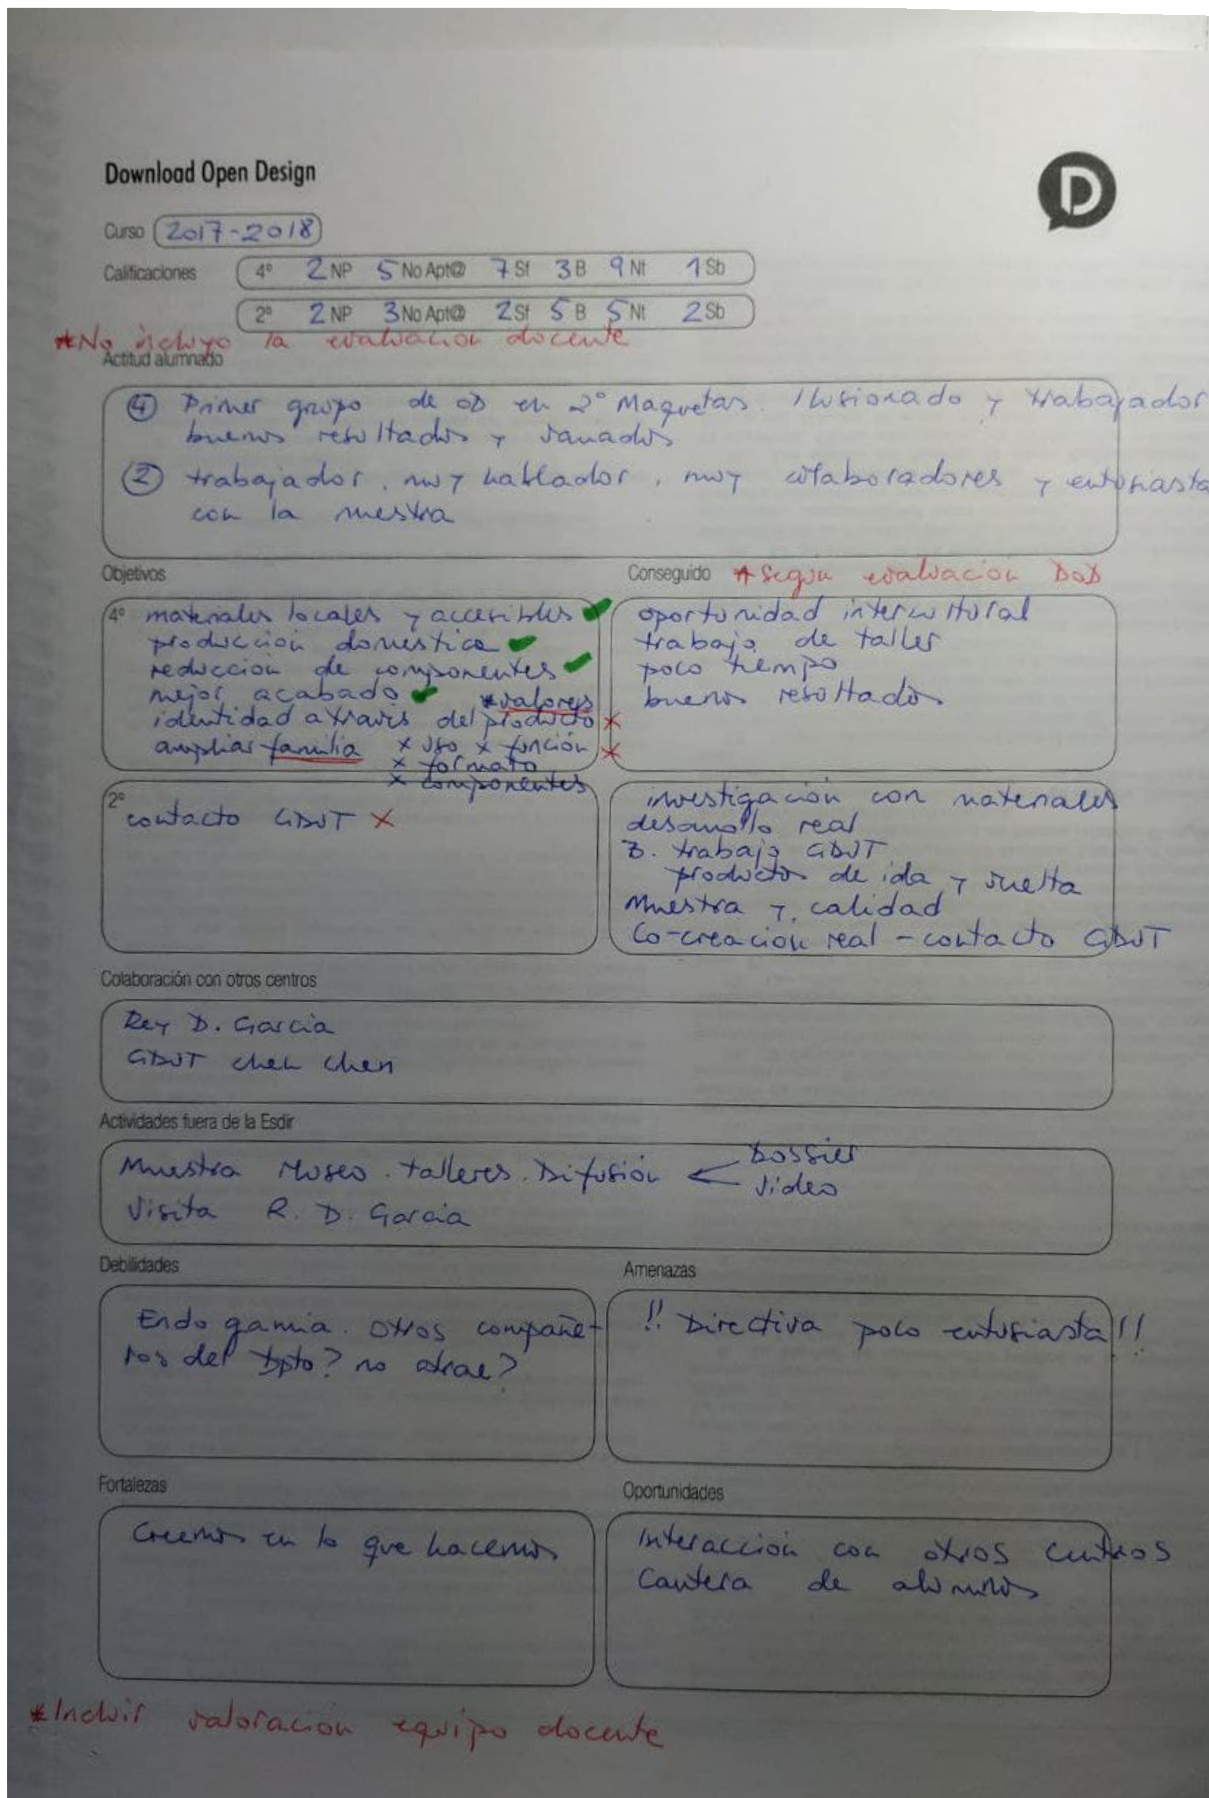 Download Open Design
D
Curso 2017-2018
Calificaciones 4º 2 NP 5 No Apt@ 7 Sf 3 B 9 Nt 1 Sb
2º 2 NP 3 No Apt@ 2 Sf 5 B 5 Nt 2 Sb
*No incluyo la evaluación docente
Actitud alumnado
④ Primer grupo de OD en 2º Maquetas. Ilusionado y trabajador
buenos resultados y variados
② trabajador, muy hablador, muy colaboradores y entusiasta
con la muestra
Objetivos
4º materiales locales y accesibles ✔
producción doméstica ✔
reducción de componentes ✔
mejor acabado ✔ *valores
identidad a través del producto ×
ampliar familia × uso × función ×
× formato
× componentes
Conseguido *según evaluación DOD
oportunidad intercultural
trabajo de taller
poco tiempo
buenos resultados
2º
contacto GDUT ×
investigación con materiales
desarrollo real
B. trabajo GDUT
productos de ida y vuelta
Muestra y calidad
Co-creación real - contacto GDUT
Colaboración con otros centros
Rey D. Garcia
GDUT chen chen
Actividades fuera de la Esdir
Muestra Museo. talleres. Difusión ← Dossier
Video
Visita R. D. Garcia
Debilidades
Endogamia. Otros compañe-
ros del Dpto? no atrae?
Amenazas
!! Directiva poco entusiasta!!
Fortalezas
Creemos en lo que hacemos
Oportunidades
Interacción con otros centros
Cantera de alumnos
*Incluir valoración equipo docente